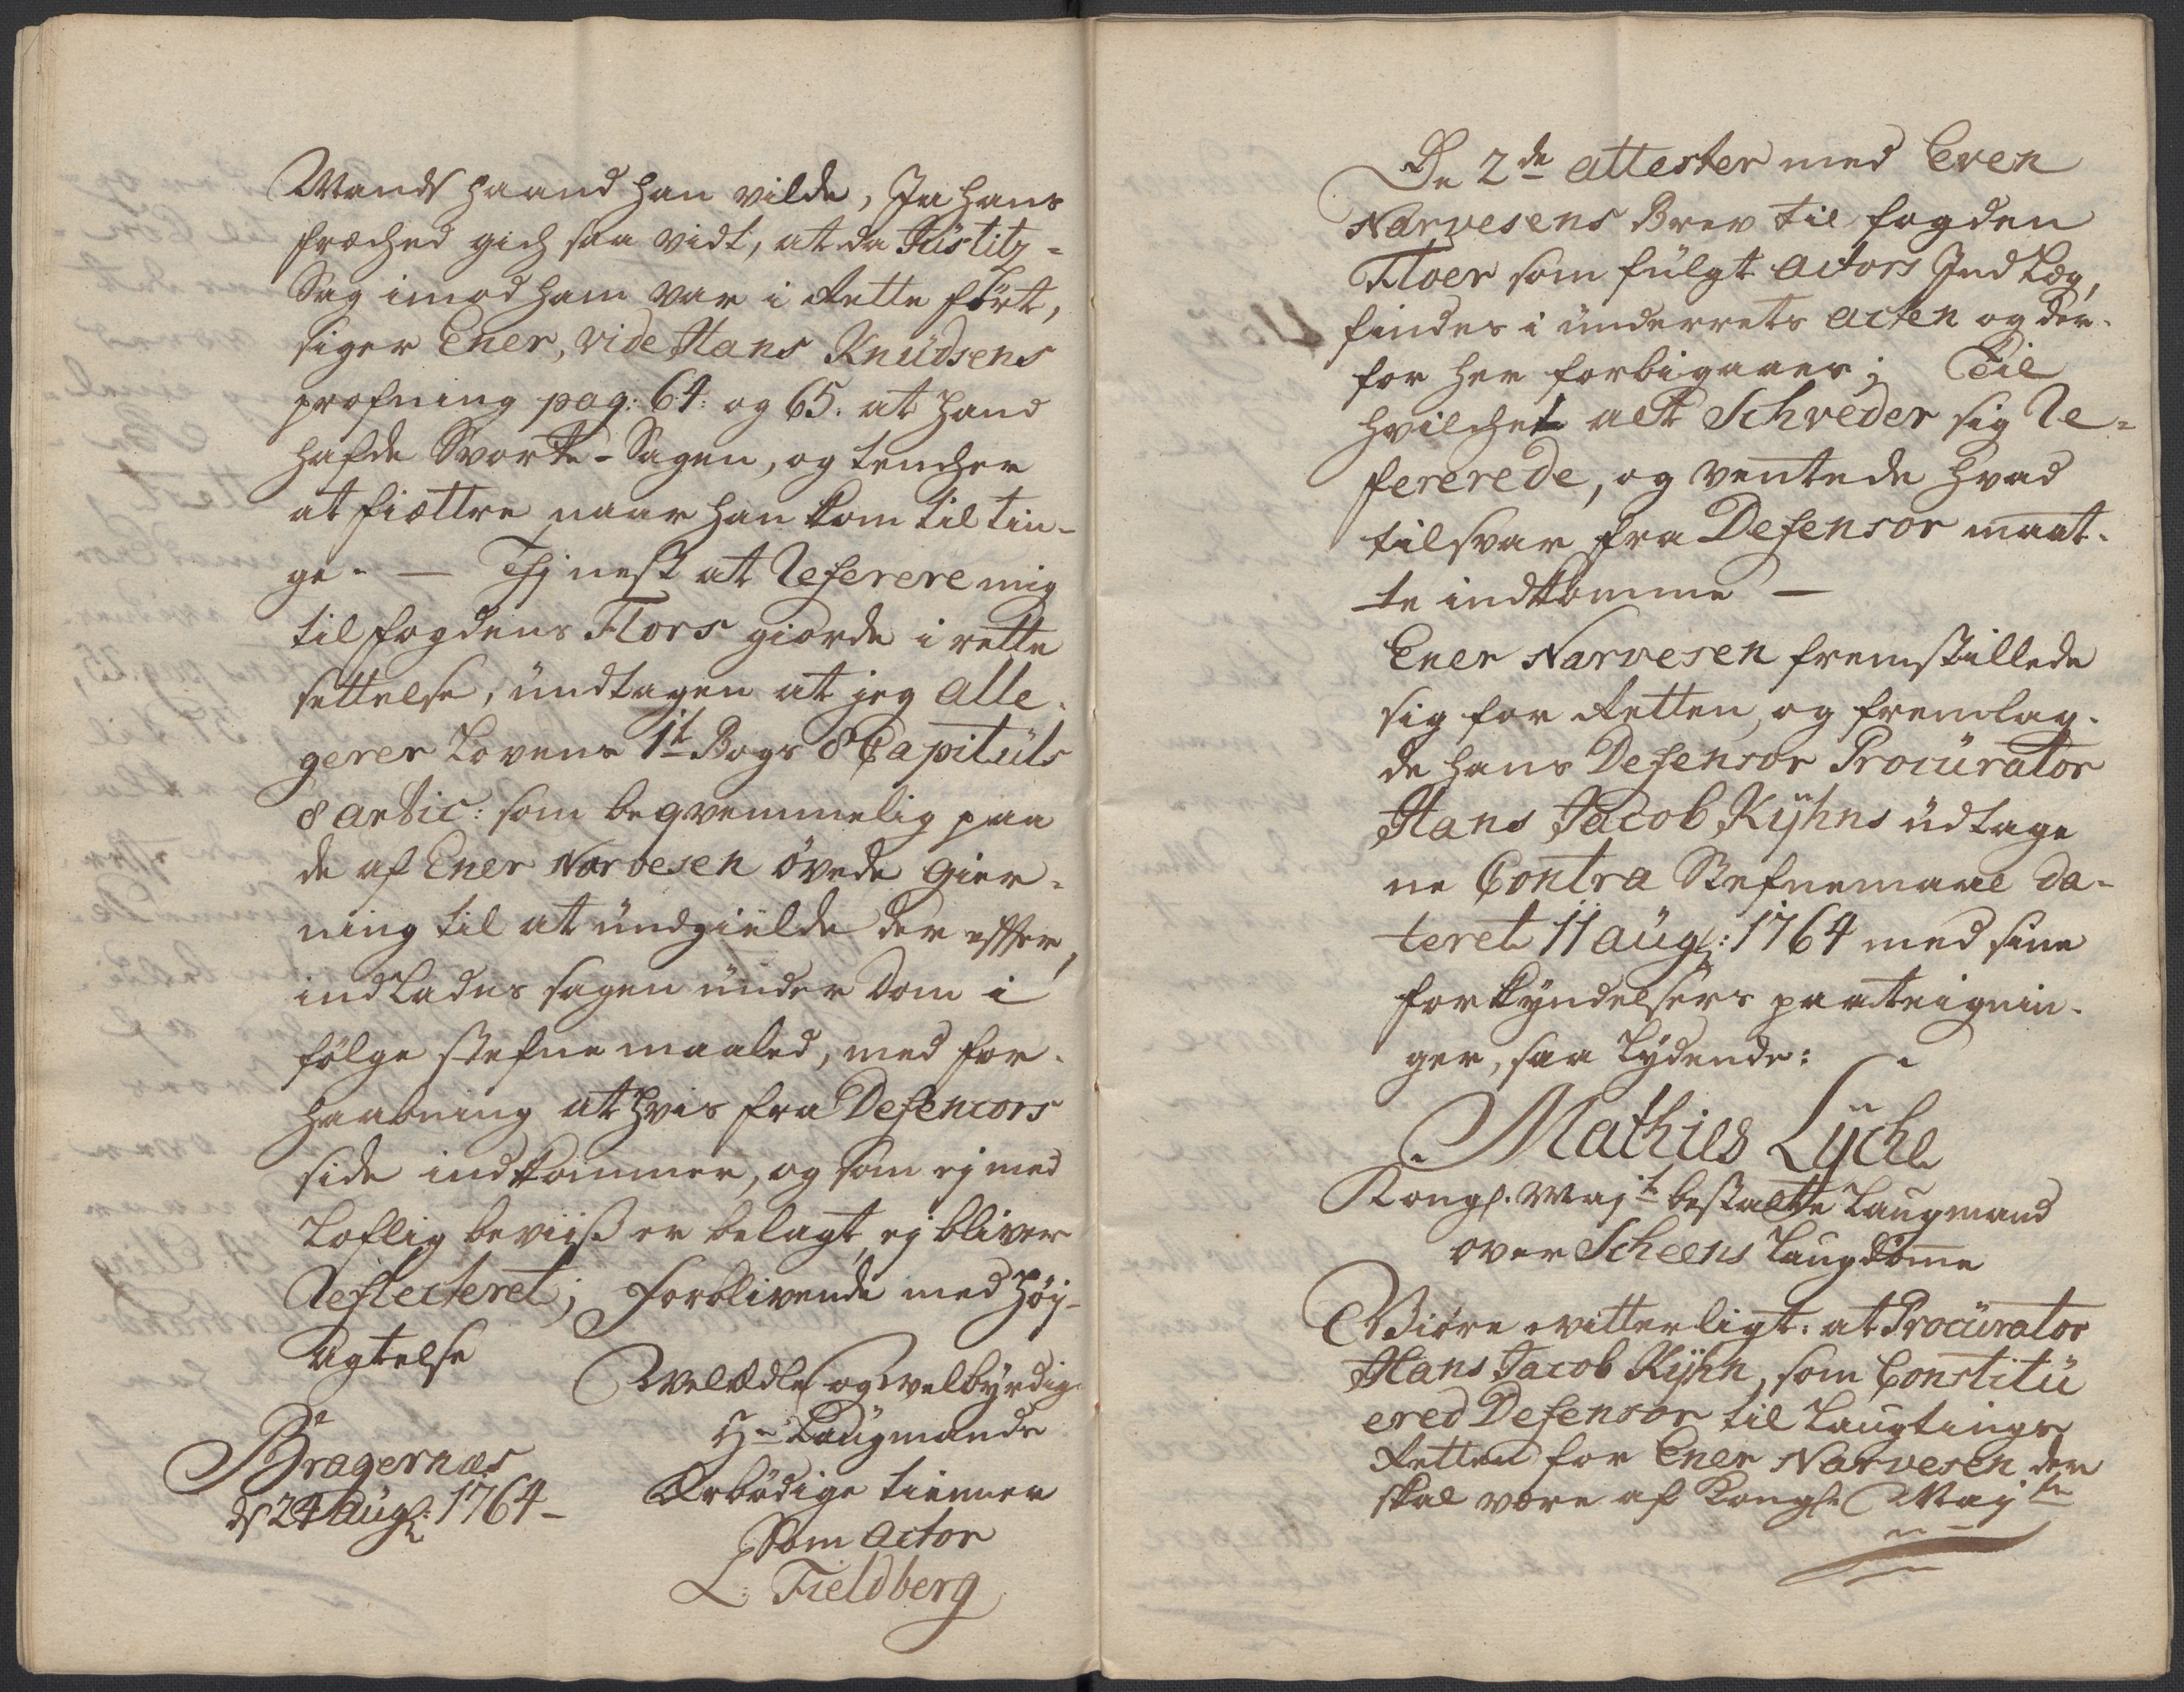 Mands haand han vilde, Ja hans
fræched gich saa vidt, at da Justitz-
Sag imod ham var i Rette ført,
siger Ener, vide Hans Knudsens
profning pag: 64: og 65. at hand
hafde Svorte-Sagen, og tencher
at fiættre naar han kom til tin-
ge. — Thj nest at Referere mig
til fogdens Flors giorde i rette
settelse, undtagen at jeg alle-
gerer Lovens 1t Bogs 8 Capituls
8 artic: som beqvemmelig paa
de af Ener Narvesen øvede gier-
ning til at undgielde der effter,
indlades sagen under Dom i
følge stefnemaaled, med for-
haabning at hvis fra Defencors
side indkommer, og som ej med
Loflig beviiß er belagt, ej bliver
Reflecteret; Forblivende med høj-
Agtelse
Velædle og velbyrdig
Hr Laugmands
Ærbødige tienner
Som Actor
L: Fieldberg
Bragernæs
ds 24 Augl: 1764 -
De 2de attester med Even
Narvesens Brev til fogden
Floer som fulgt Actors Indlæg,
findes i underrets acten og der-
for her forbigaaes; Til
hvilchet alt Schreder sig Re-
fererede, og ventede hvad
tilsvar fra Defensor maat-
te indkomme —
Ener Narvesen fremstillede
sig for Retten, og fremlag-
de hans Defensor Procurator
Hans Jacob Kÿhns udtage
ne Contra Stefnemaal da-
teret 11 aug: 1764 med sine
forkyndelsers paateignin-
ger, saa Lydende:
Mathies Lÿche
Kongl. Majts bestaltte Laugmand
over Scheens Laugdømme
Giøre vitterligt: at Procurator
Hans Jacob Kÿhn, som Constitu
ered Defensor til Laugtings
Retten for Ener Narvesen, der
skal være af Kongl Maj